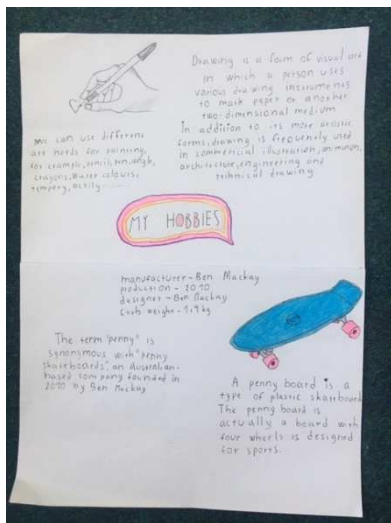 Drawing is a form of visual art
in which a person uses
various drawing instruments
to mark paper or another
two-dimensional medium
In addition to its more artistic
forms, drawing is frequently used
in commercial illustration, animation,
architecture, engineering and
technical drawing
We can use different
for example, pencil, pen,
crayons, water colours,
MY HOBBIES
manufacturer - Ben Mackay
production - 2010
designer - Ben Mackay
weight - 1,9 kg
The term "penny" is
synonymous with "penny
skateboards", an Australian-
based company founded in
2010 by Ben Mackay
A penny board is a
type of plastic skateboard
The penny board is
actually a board with
four wheels is designed
for sports.